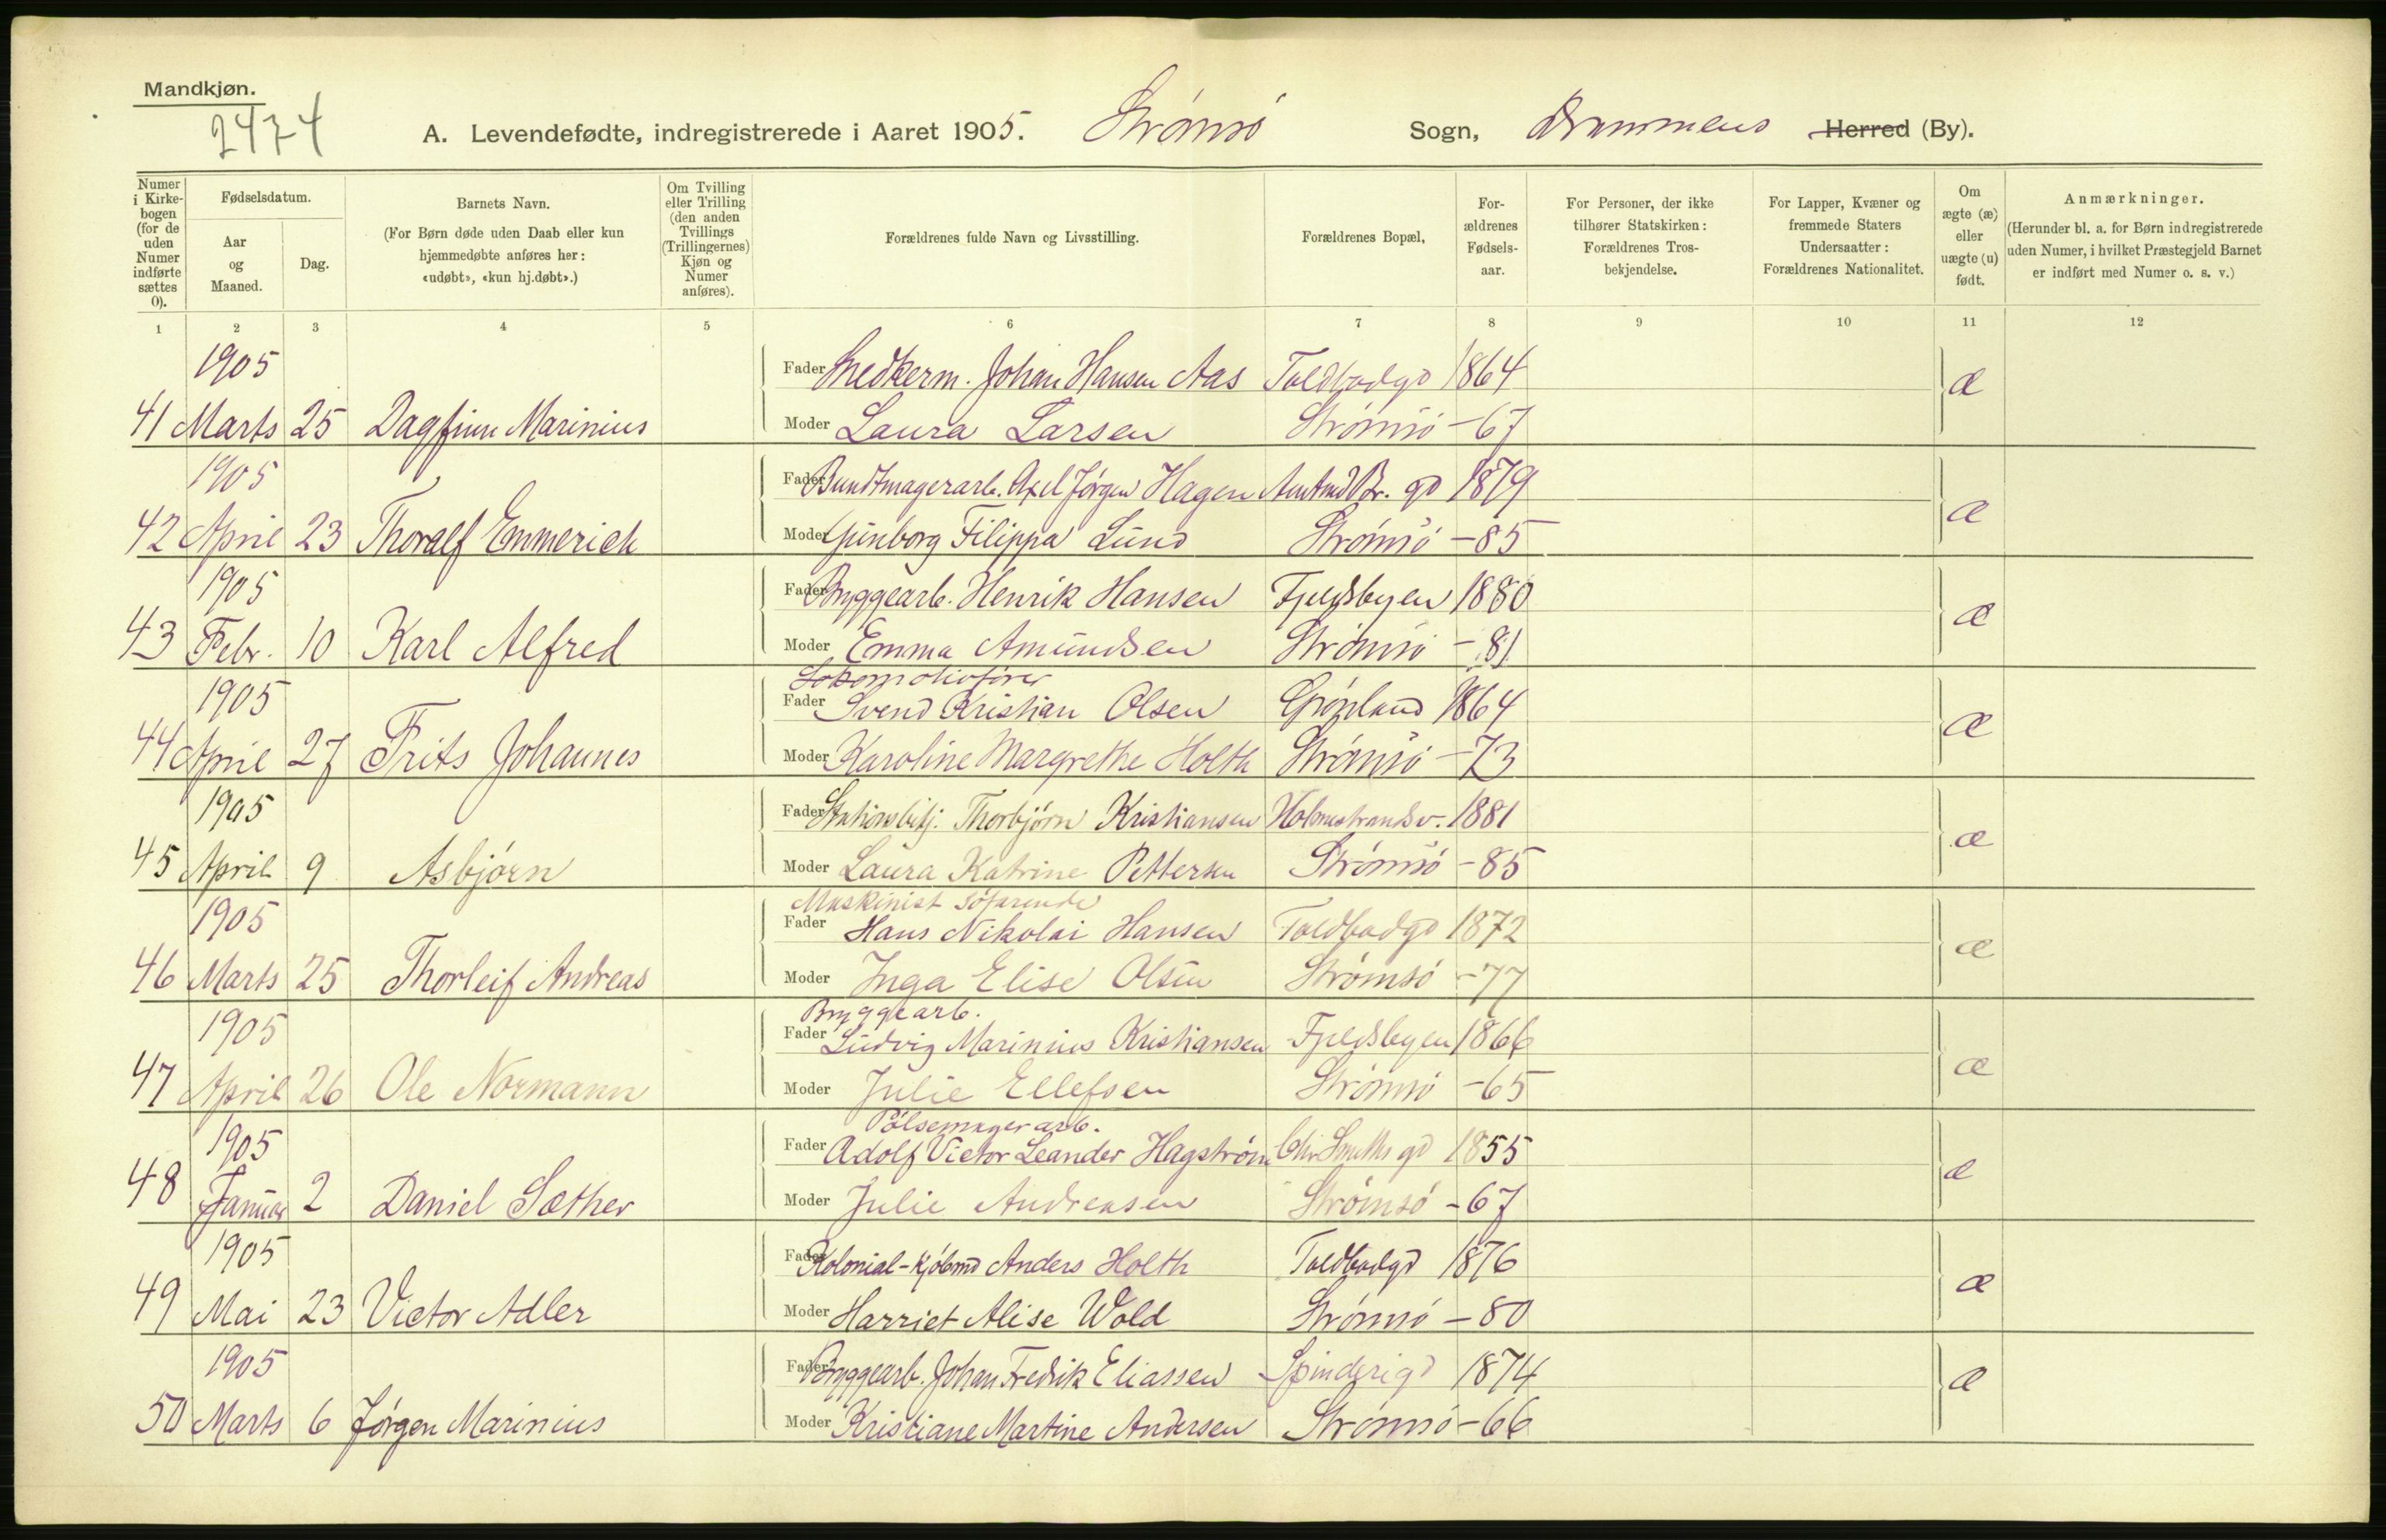 Mandkjøn.
2474
A. Levendefødte, indregistrerede i Aaret 1905. Strømsø Sogn, Drammens Herred (By).
Numer i Kirkebogen (for de uden Numer indførte sættes 0).
Fødselsdatum.
Aar og Maaned.
Dag.
Barnets Navn.
(For Børn døde uden Daab eller kun hjemmedøbte anføres her: «udøbt», «kun hj.døbt».)
Om Tvilling eller Trilling (den anden Tvillings (Trillingernes) Kjøn og Numer anføres).
Forældrenes fulde Navn og Livsstilling.
Forældrenes Bopæl,
Forældrenes Fødselsaar.
For Personer, der ikke tilhører Statskirken: Forældrenes Trosbekjendelse.
For Lapper, Kvæner og fremmede Staters Undersaatter: Forældrenes Nationalitet.
Om ægte (æ) eller uægte (u) født.
Anmærkninger.
(Herunder bl. a. for Børn indregistrerede uden Numer, i hvilket Præstegjeld Barnet er indført med Numer o. s. v.)
1 2 3 4 5 6 7 8 9 10 11 12
1905 Fader Snedkerm. Johan Hansen Aas Toldbodgd 1864 æ
41 Marts 25 Dagfinn Marinius Moder Laura Larsen Strømsø -67
1905 Fader Buntmagerarb. Axel Jørgen Hagen Amtmd Br. gd 1879 æ
42 April 23 Thoralf Emmerich Moder Gunborg Filippa Lund Strømsø -85
1905 Fader Byggearb. Henrik Hansen Fjeldsbyen 1880 æ
43 Febr. 10 Karl Alfred Moder Emma Amundsen Strømsø -81
Lokomotivfører
1905 Fader Svend Kristian Olsen Grønland 1864 æ
44 April 27 Frits Johannes Moder Karoline Margrethe Holth Strømsø -73
1905 Fader Stationsbetj. Thorbjørn Kristiansen Holmestrandsv. 1881 æ
45 April 9 Asbjørn Moder Laura Katrine Pettersen Strømsø -85
Maskinist søfarende
1905 Fader Hans Nikolai Hansen Toldbodgd 1872 æ
46 Marts 25 Thorleif Andreas Moder Inga Elise Olsen Strømsø -77
Bryggearb.
1905 Fader Ludvig Marinius Kristiansen Fjeldsbyen 1866 æ
47 April 26 Ole Normann Moder Julie Ellefsen Strømsø -65
Pølsemagerarb.
1905 Fader Adolf Victor Leander Hagstrøm Chr Smiths gd 1855 æ
48 Januar 2 Daniel Sæther Moder Julie Andreasen Strømsø -67
1905 Fader Kolonial-Kjøbmd Anders Holth Toldbodgd 1876 æ
49 Mai 23 Victor Adler Moder Harriet Alise Wold Strømsø -80
1905 Fader Bryggearb. Johan Fredrik Eliassen Spinderigd 1874 æ
50 Marts 6 Jørgen Marinius Moder Kristiane Martine Andersen Strømsø -66